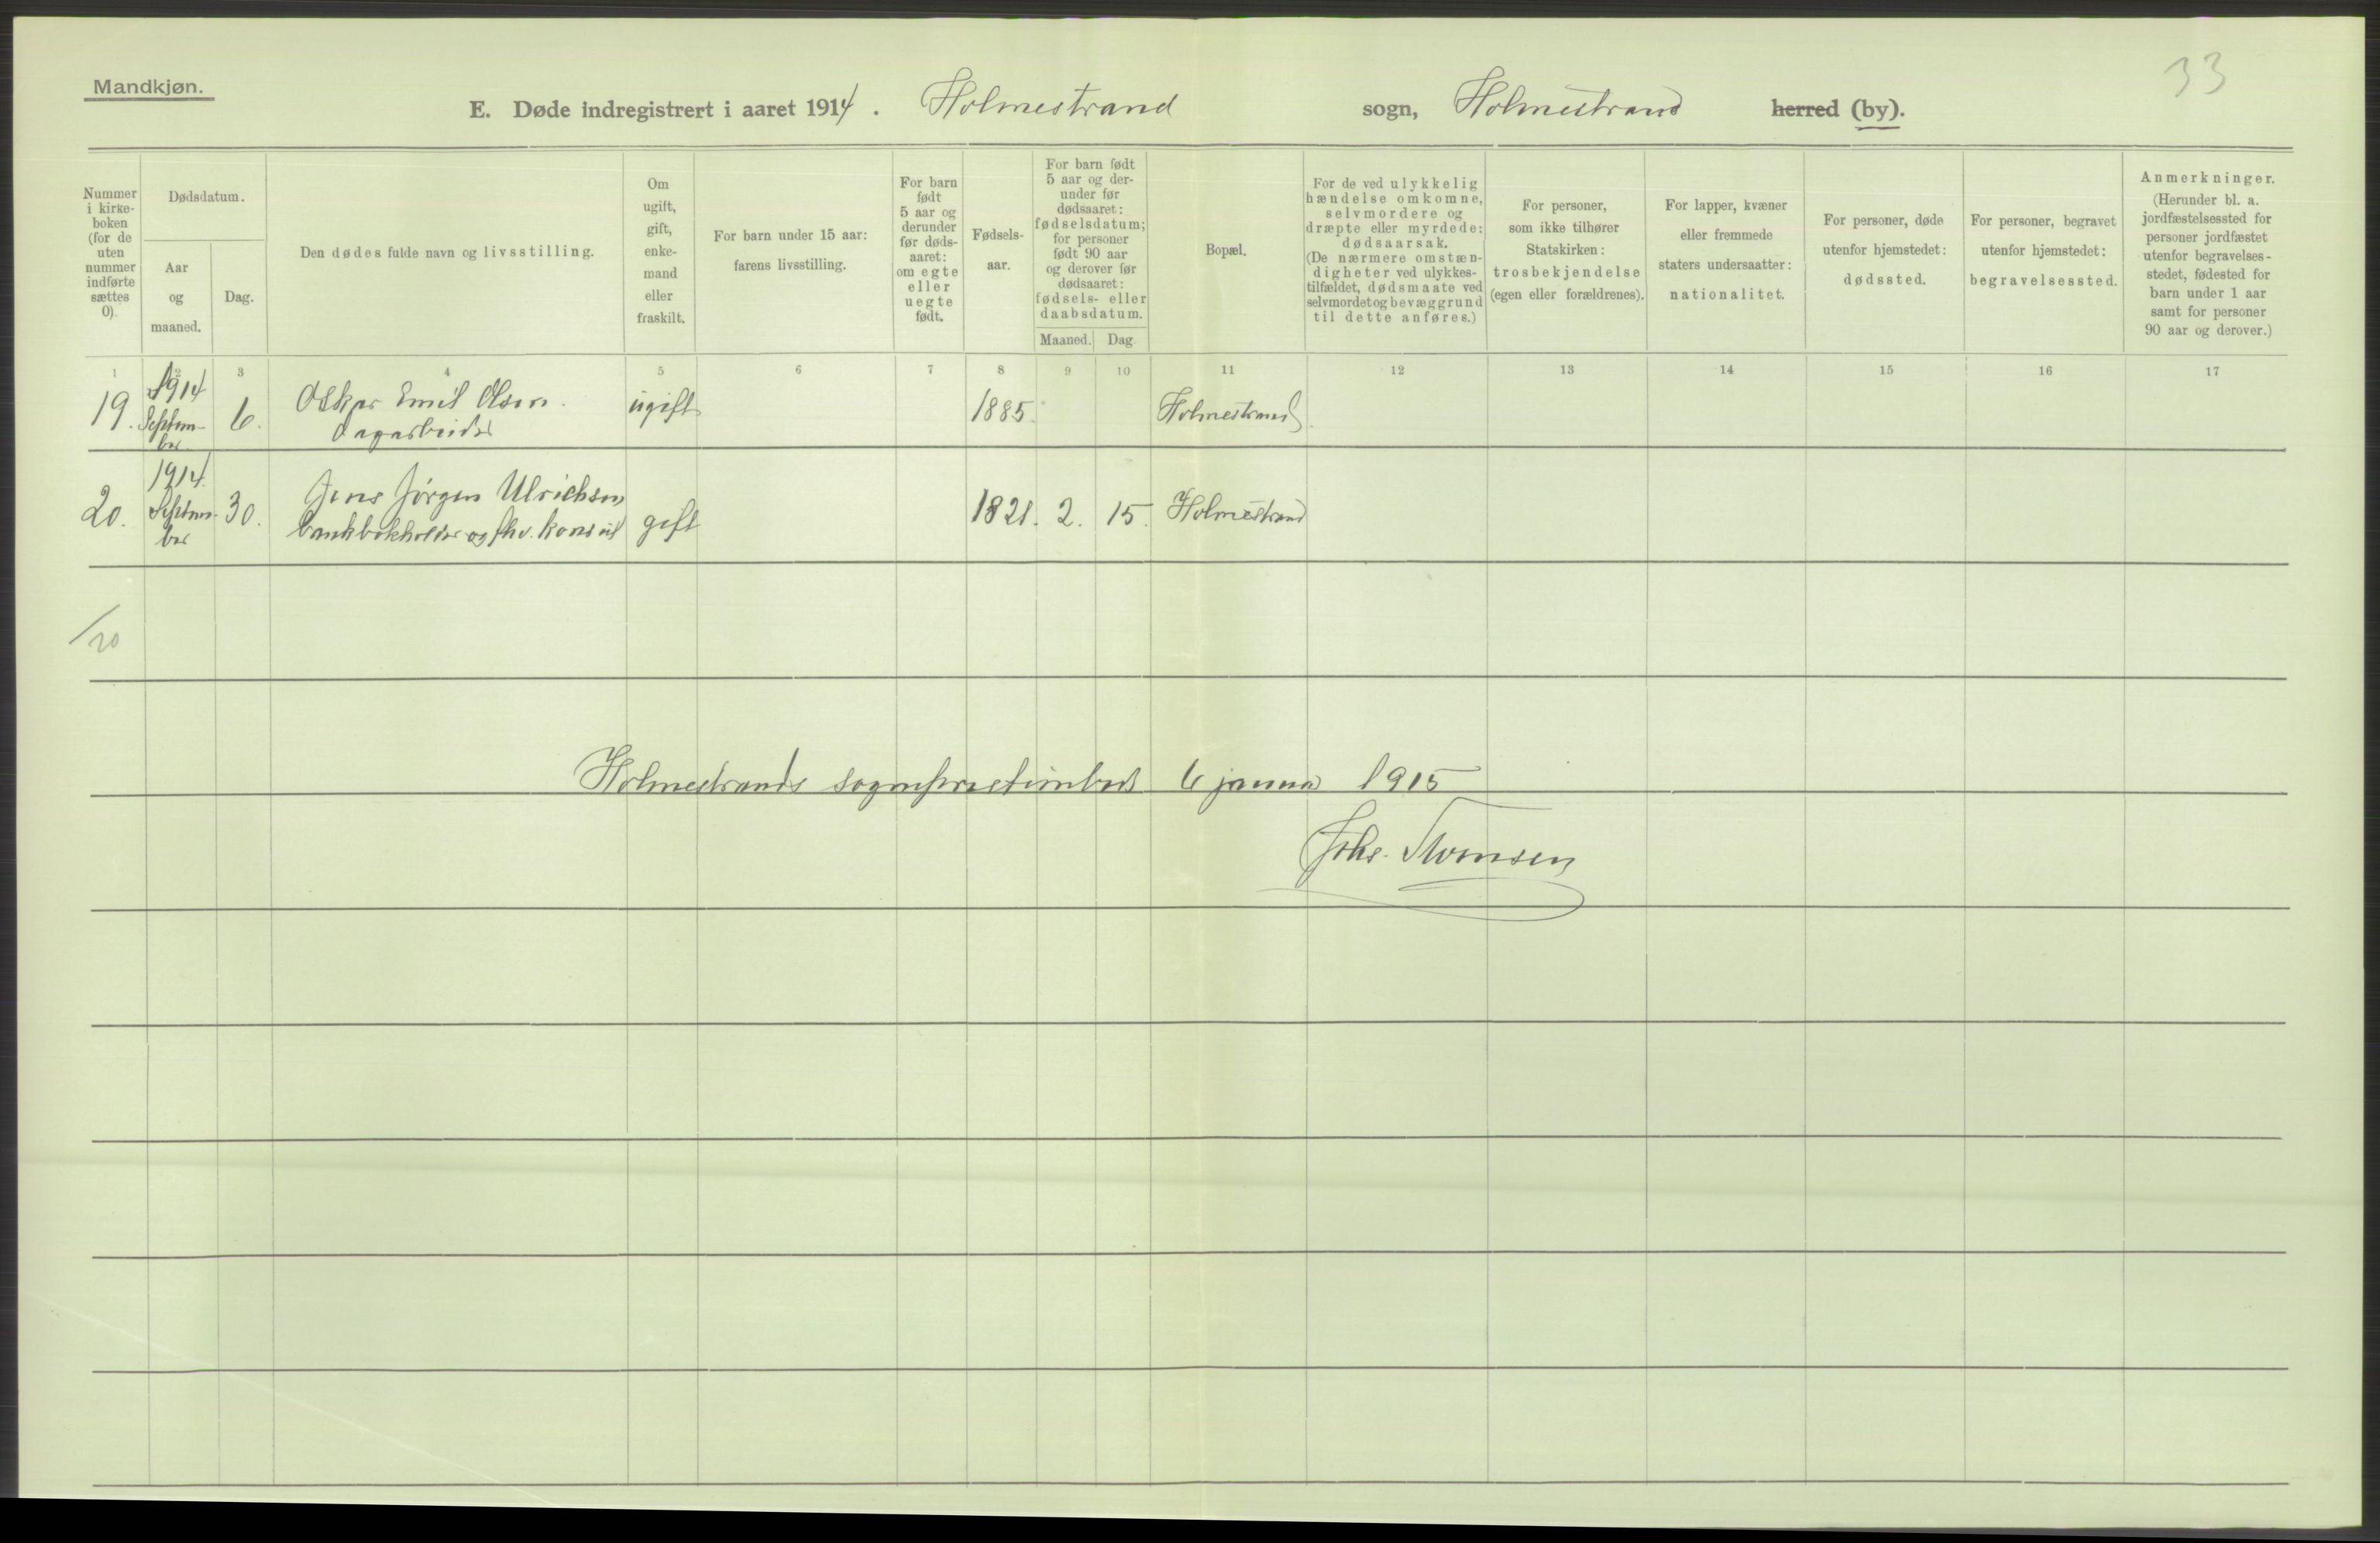 33
Mandkjøn.
E. Døde indregistrert i aaret 1914. Holmestrand sogn, Holmestrand herred (by).
Nummer
i kirke-
boken
(for de
uten
nummer
indførte
sættes
0).
Dødsdatum.
Aar
og
maaned.
Dag.
Den dødes fulde navn og livsstilling.
Om
ugift,
gift,
enke-
mand
eller
fraskilt.
For barn under 15 aar:
farens livsstilling.
For barn
født
5 aar og
derunder
før døds-
aaret:
om egte
eller
uegte
født.
Fødsels-
aar.
For barn født
5 aar og der-
under før
dødsaaret:
fødselsdatum;
for personer
født 90 aar
og derover før
dødsaaret:
fødsels- eller
daabsdatum.
Maaned. Dag
Bopæl.
For de ved ulykkelig
hændelse omkomne,
selvmordere og
dræpte eller myrdede:
dødsaarsak.
(De nærmere omstæn-
digheter ved ulykkes-
tilfældet, dødsmaate ved
selvmordet og bevæggrund
til dette anføres.)
For personer,
som ikke tilhører
Statskirken:
trosbekjendelse
(egen eller forældrenes).
For lapper, kvæner
eller fremmede
staters undersaatter:
nationalitet.
For personer, døde
utenfor hjemstedet:
dødssted.
For personer, begravet
utenfor hjemstedet:
begravelsessted.
Anmerkninger.
(Herunder bl. a.
jordfæstelsessted for
personer jordfæstet
utenfor begravelses-
stedet, fødested for
barn under 1 aar
samt for personer
90 aar og derover.)
1 2 3 4 5 6 7 8 9 10 11 12 13 14 15 16 17
19. 1914 Septem-ber 6. Oskar Emil Olsen. ugift 1885. Holmestrand.
dagarbeider
20. 1914. Septem-ber 30. Jens Jörgen Ulrichsen gift 1821. 2. 15. Holmestrand
bankbokholder og fhv. konsul
/20
Holmestrands sogneprestembed 6 januar 1915
Johs.